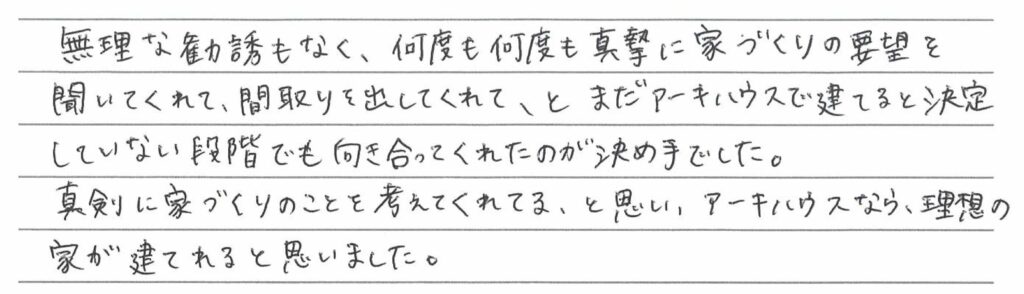 無理な勧誘もなく、何度も何度も真摯に家づくりの要望を
聞いてくれて、間取りを出してくれて、と まだアーキハウスで建てると決定
していない段階でも向き合ってくれたのが決め手でした。
真剣に家づくりのことを考えてくれてる、と思い、アーキハウスなら、理想の
家が建てれると思いました。